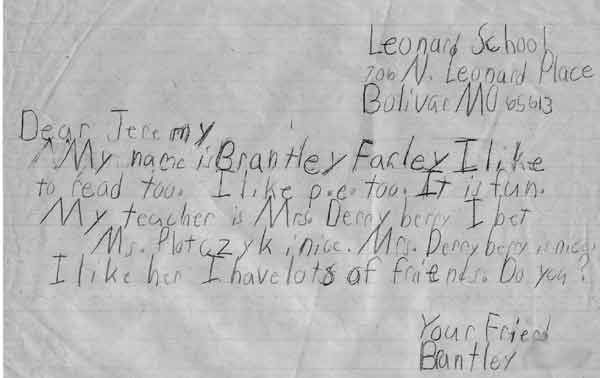 Leonard School
706 N. Leonard Place
Bolivar MO 65613
Dear Jeremy,
My name is Brantley Farley I like
to read too. I like p.e. too. It is fun.
My teacher is Mrs. Derryberry I bet
Ms. Plotczyk i nice. Mrs. Derryberry is nice,
I like her I have lots of friends. Do you?
Your Fried
Brantley